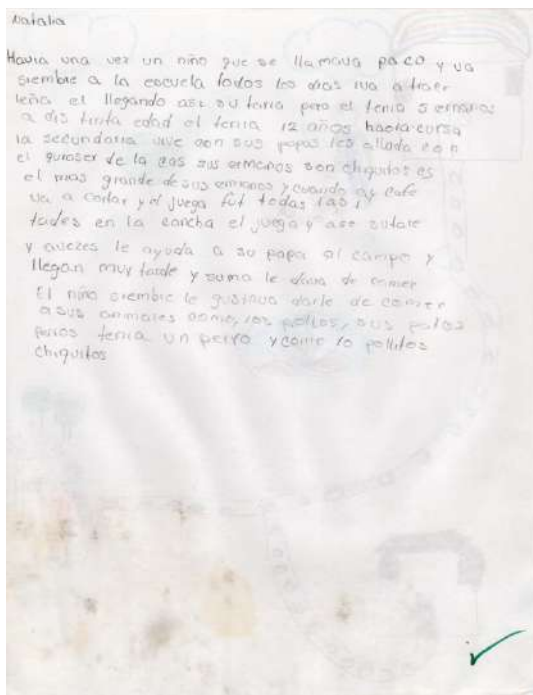 Natalia
Havia una vez un niño que se llamava paco y va
siembre a la escuela todos los dias iva a traer
leña el llegando ase su taria pero el tenia 5 ermanos
a dis tinta edad el tenia 12 años hacia cursa
la secundaria vive con sus papas les alluda con
el de la cas sus ermanos son chiquitos es
el mas grande de sus ermanos y cuando ay cafe
va a cortar y el juega fut todas las
tades en la cancha el juega y ase sutare
y aveces le ayuda a su papa al campo y
llegan muy tarde y suma le dava de comer
El niño siembre le gustava darle de comer
a sus animales como, los pollos, sus patos
perros tenia un perro y como 10 pollitos
chiquitos